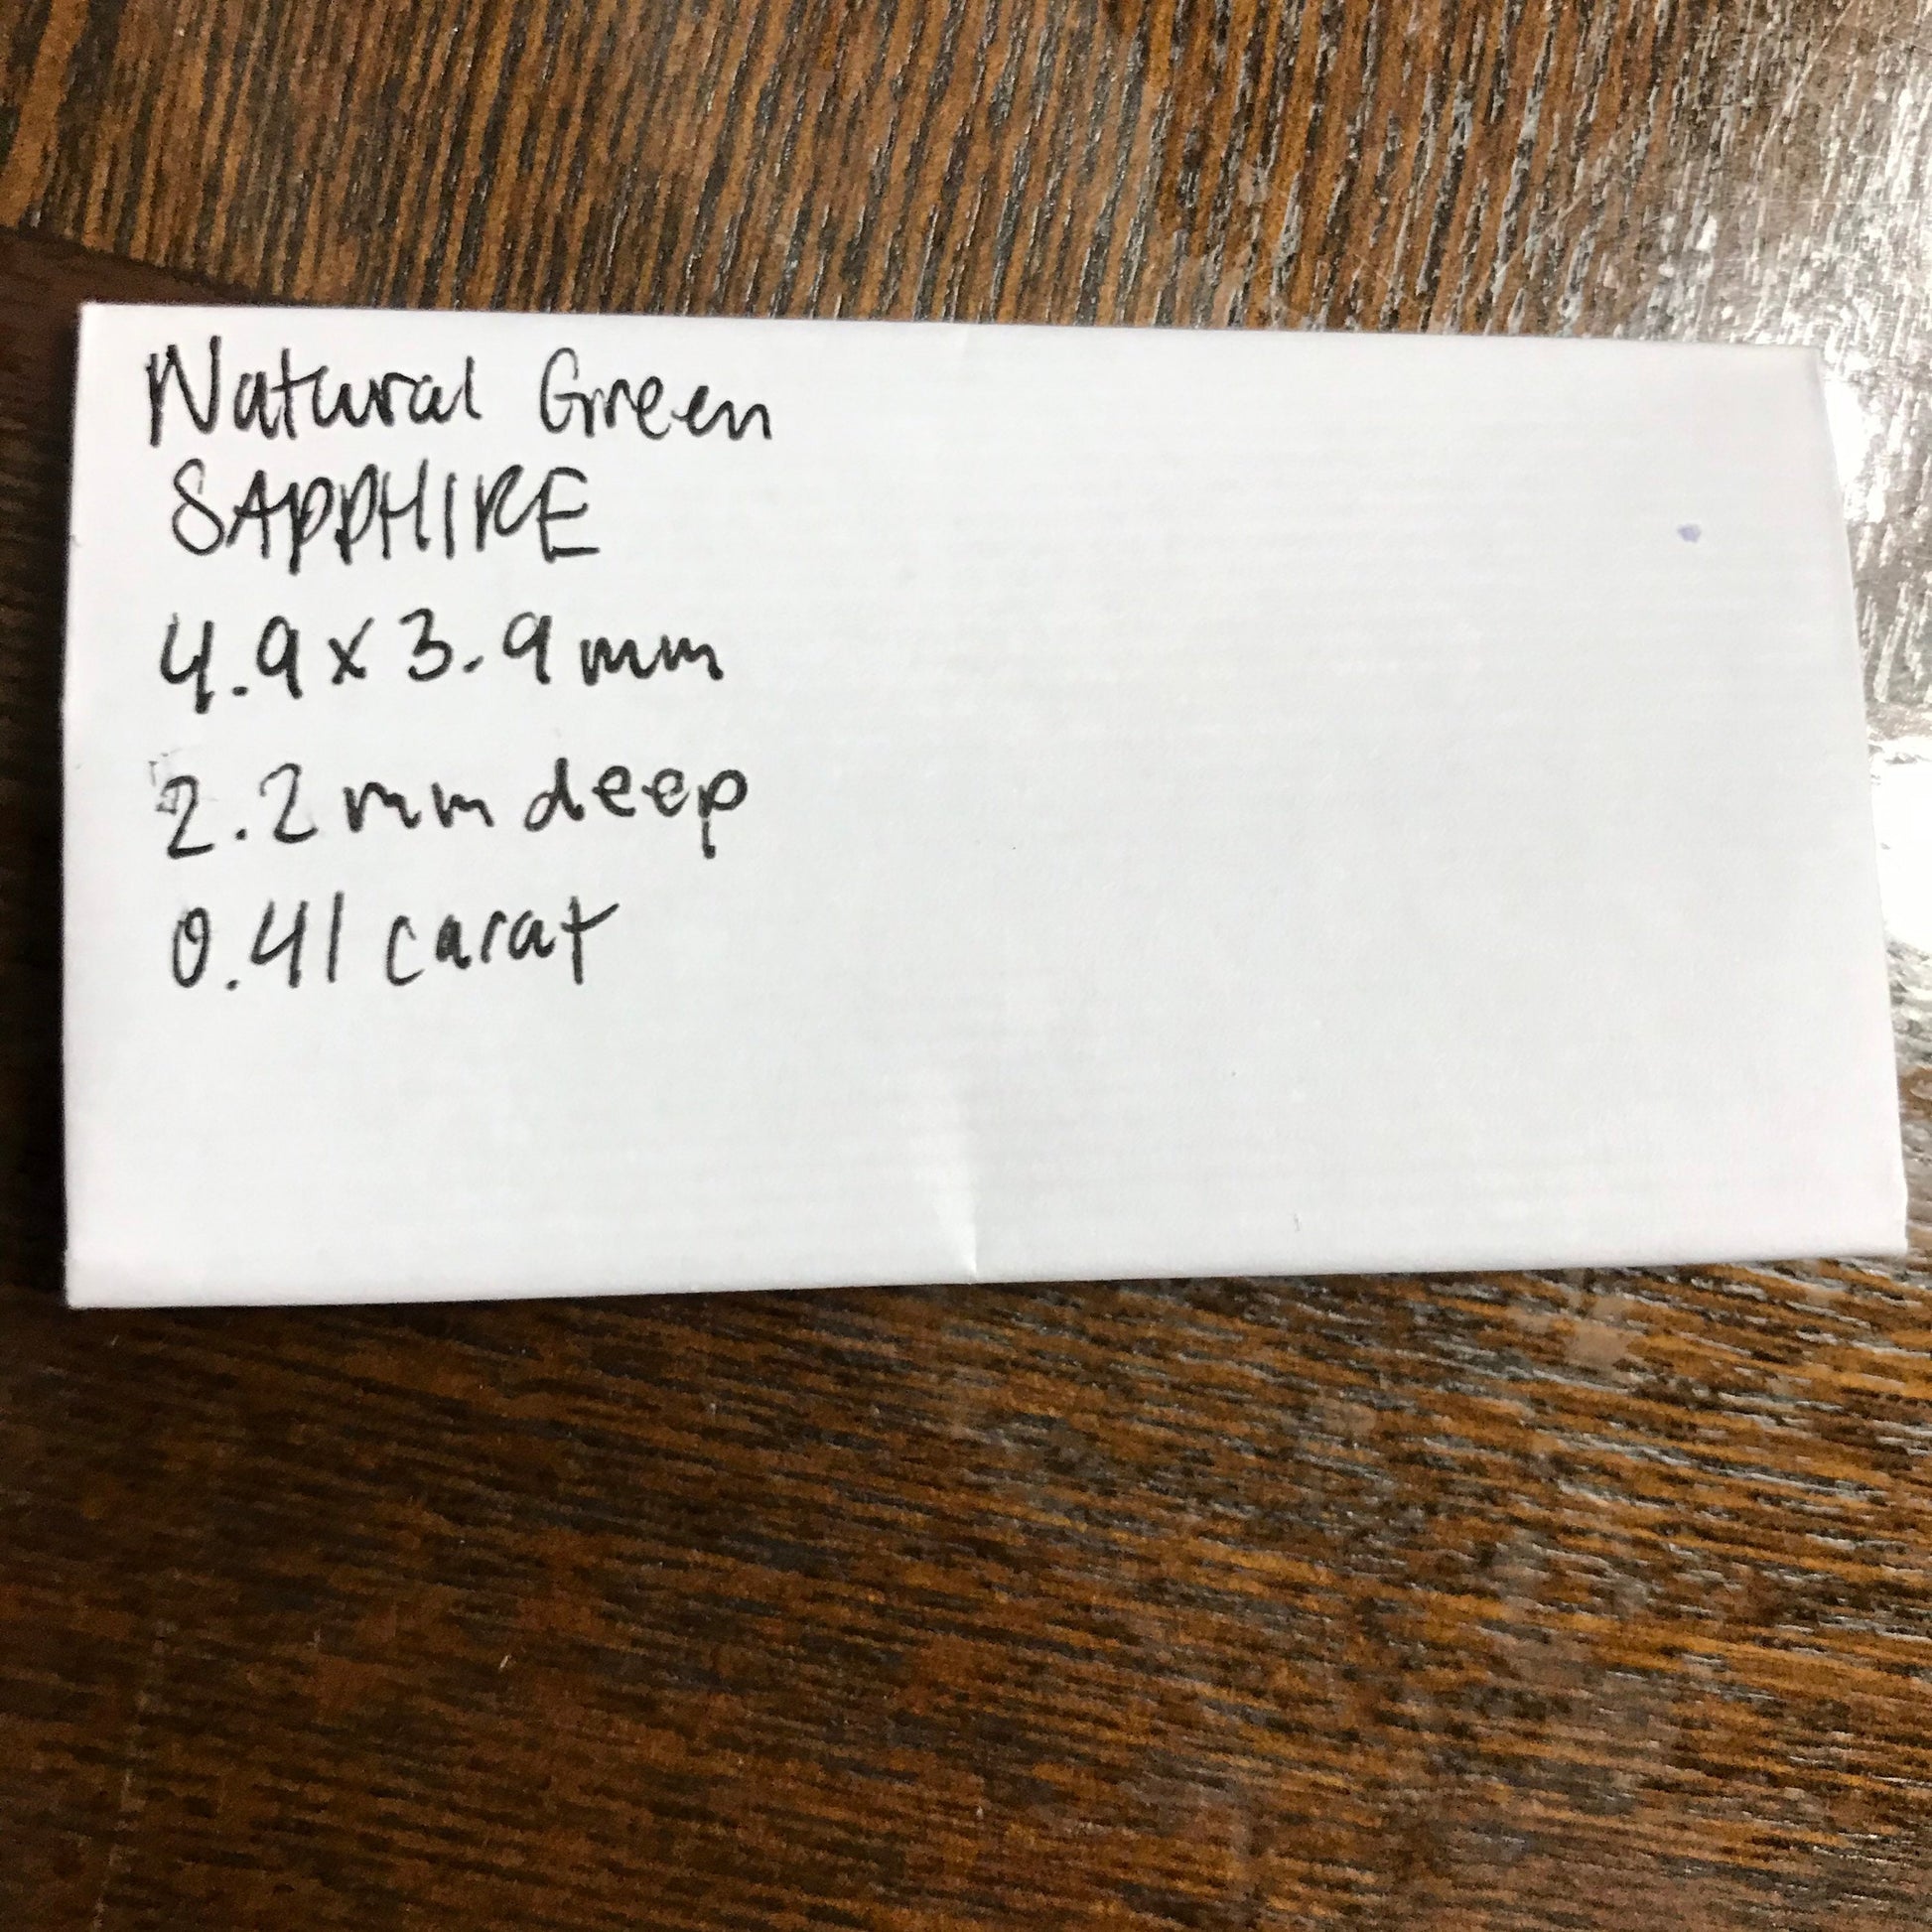 Natural Green
SAPPHIRE
4.9x3.9mm
2.2mm deep
0.41 carat